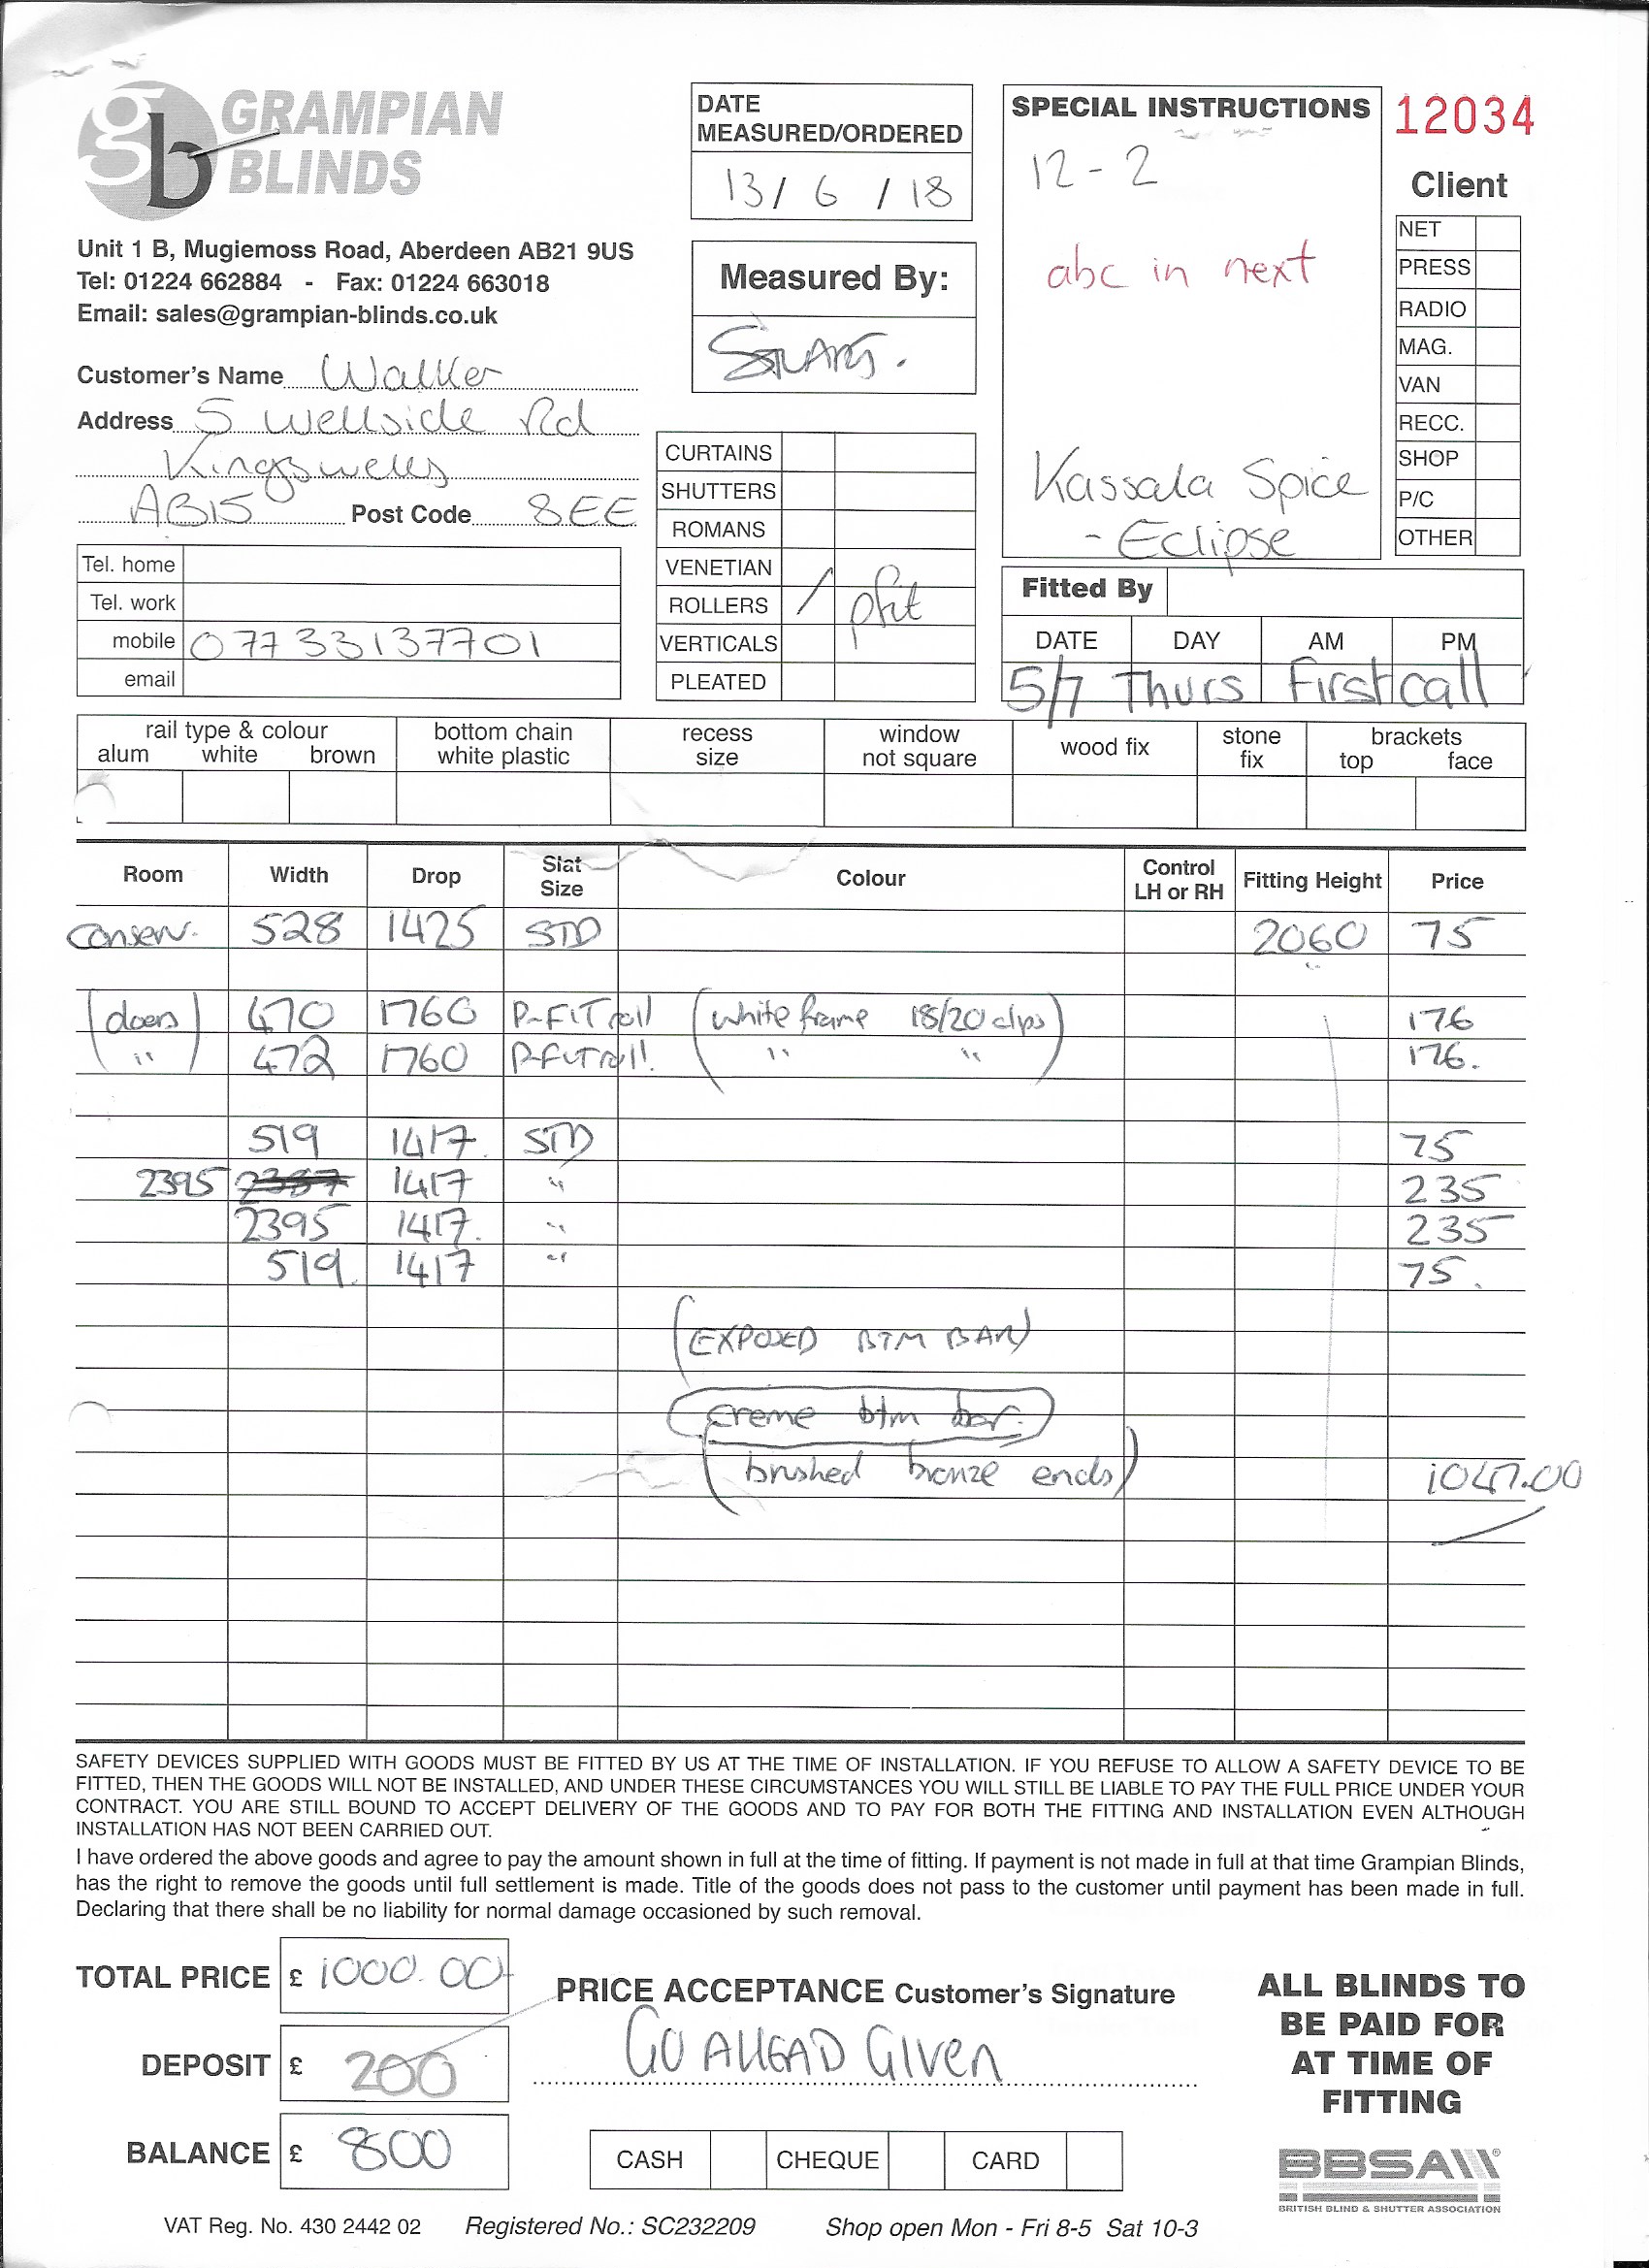 gb GRAMPIAN
BLINDS
Unit 1 B, Mugiemoss Road, Aberdeen AB21 9US
Tel: 01224 662884 - Fax: 01224 663018
Email: sales@grampian-blinds.co.uk
Customer's Name Walker
Address 5 Wellside Rd
Kingswells
AB15 Post Code 8EE
Tel. home
Tel. work
mobile 07733137701
email
DATE
MEASURED/ORDERED
13/6/18
Measured By:
CURTAINS
SHUTTERS
ROMANS
VENETIAN
ROLLERS / pfit
VERTICALS
PLEATED
SPECIAL INSTRUCTIONS
12-2
abc in next
Kassala Spice
- Eclipse
12034
Client
NET
PRESS
RADIO
MAG.
VAN
RECC.
SHOP
P/C
OTHER
Fitted By
DATE DAY AM PM
5/7 Thurs First call
rail type & colour bottom chain recess window wood fix stone brackets
alum white brown white plastic size not square fix top face
Room Width Drop Slat Size Colour Control LH or RH Fitting Height Price
Conserv. 528 1425 STD 2060 75
(doors) 470 1760 P-FIT roll (white frame 18/20 clips) 176
" 472 1760 P-FIT roll. " " 176.
519 1417. STD 75
2395 2387 1417 " 235
2395 1417. " 235
519. 1417 " 75.
(EXPOSED BTM BAR)
(creme btm bar.)
(brushed bronze ends) 1047.00
SAFETY DEVICES SUPPLIED WITH GOODS MUST BE FITTED BY US AT THE TIME OF INSTALLATION. IF YOU REFUSE TO ALLOW A SAFETY DEVICE TO BE
FITTED, THEN THE GOODS WILL NOT BE INSTALLED, AND UNDER THESE CIRCUMSTANCES YOU WILL STILL BE LIABLE TO PAY THE FULL PRICE UNDER YOUR
CONTRACT. YOU ARE STILL BOUND TO ACCEPT DELIVERY OF THE GOODS AND TO PAY FOR BOTH THE FITTING AND INSTALLATION EVEN ALTHOUGH
INSTALLATION HAS NOT BEEN CARRIED OUT.
I have ordered the above goods and agree to pay the amount shown in full at the time of fitting. If payment is not made in full at that time Grampian Blinds,
has the right to remove the goods until full settlement is made. Title of the goods does not pass to the customer until payment has been made in full.
Declaring that there shall be no liability for normal damage occasioned by such removal.
TOTAL PRICE £ 1000.00
DEPOSIT £ 200
BALANCE £ 800
PRICE ACCEPTANCE Customer's Signature
GO AHEAD GIVEN
CASH CHEQUE CARD
ALL BLINDS TO
BE PAID FOR
AT TIME OF
FITTING
BBSA
BRITISH BLIND & SHUTTER ASSOCIATION
VAT Reg. No. 430 2442 02 Registered No.: SC232209 Shop open Mon - Fri 8-5 Sat 10-3